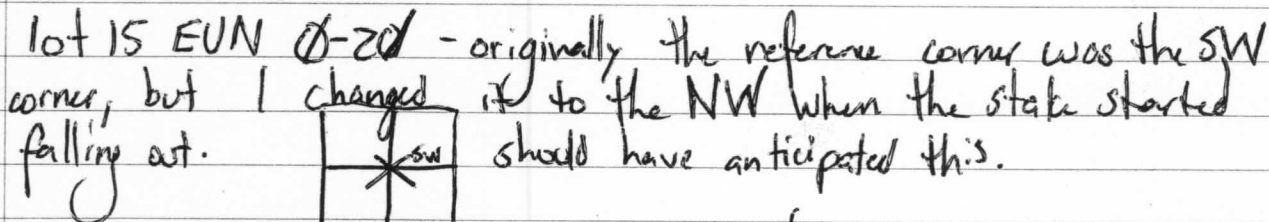 lot 15 EUN 0-20 - originally the reference corner was the SW
corner, but I changed it to the NW when the stake started
falling out. SW should have anticipated this.